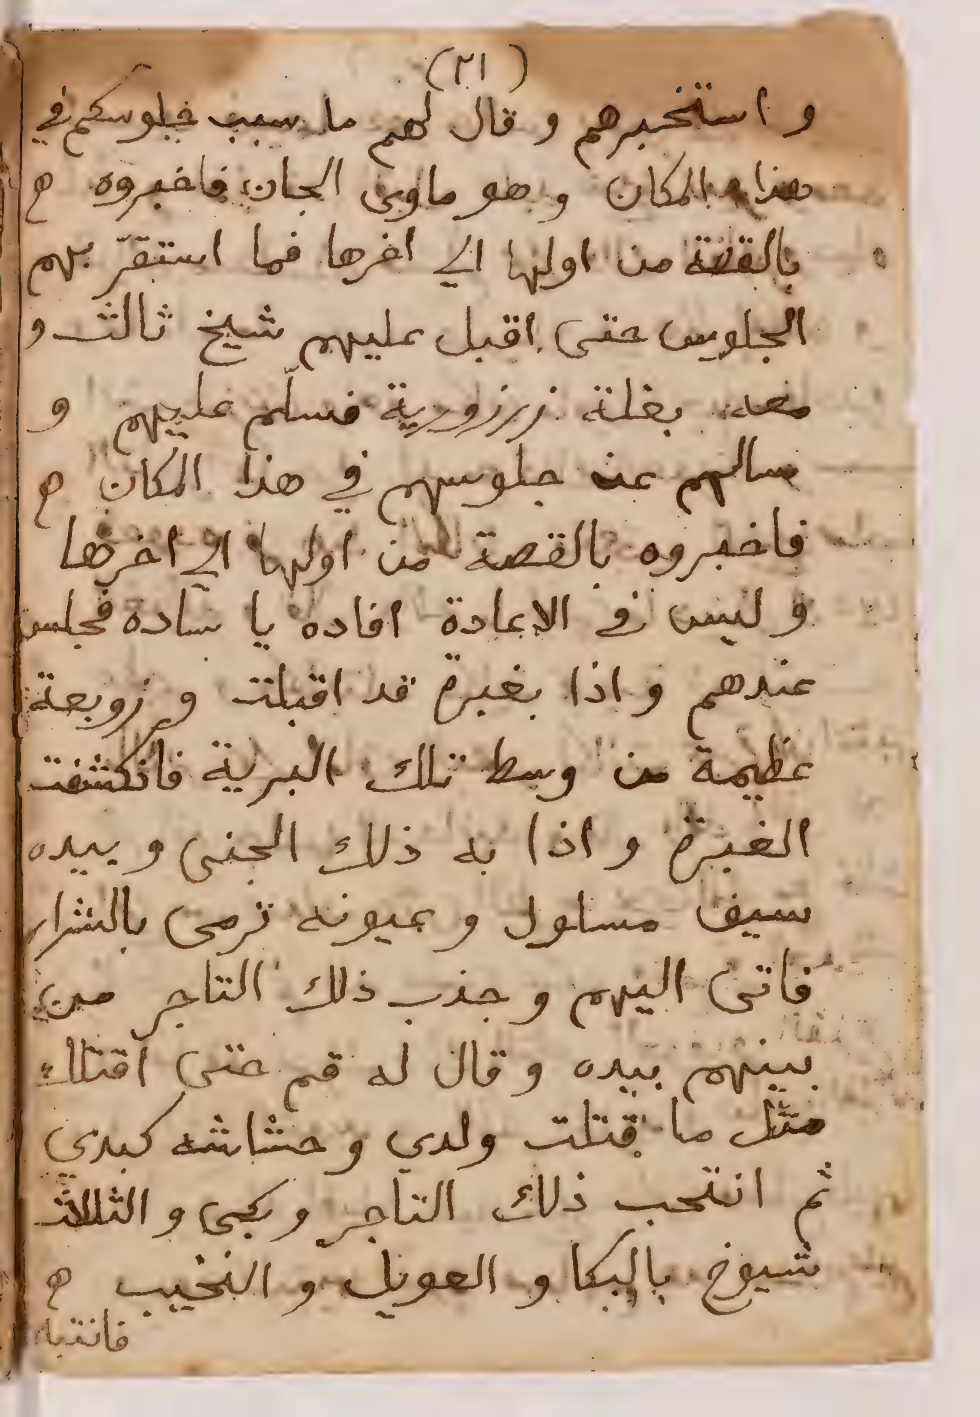 (٢١)
و استخبرهم و قال لهم ما سبب جلوسكم في
هذا المكان و هو ماوى الجان فاخبروه
بالقصة من اولها الى اخرها فما استقرّ بهم
الجلوس حتى اقبل عليهم شيخ ثالث و
معه بغلة زرزورية فسلّم عليهم و
سالهم عن جلوسهم في هذا المكان
فاخبروه بالقصة من اولها الى اخرها
و ليس في الاعادة افاده يا ساده فجلس
عندهم و اذا بغبرة قد اقبلت و زوبعة
عظيمة من وسط تلك البرية فانكشفت
الغبرة و اذا به ذلك الجنى و بيده
سيف مسلول و عيونه ترمى بالشرار
فاتى اليهم و جذب ذلك التاجر من
بينهم بيده و قال له قم حتى اقتلك
مثل ما قتلت ولدي و حشاشه كبدي
ثم انتحب ذلك التاجر و بكى و الثلاث
شيوخ بالبكا و العويل و النحيب
فانتبه